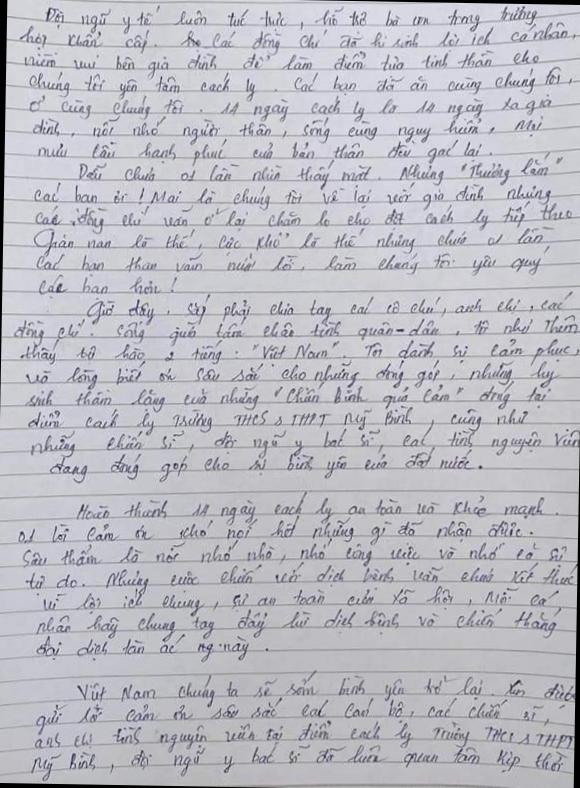 Đội ngũ y tế luôn túc trực, hỗ trợ bà con trong trường
hợp khẩn cấp. Các đồng chí đã hi sinh lợi ích cá nhân,
niềm vui bên gia đình để làm điểm tựa tinh thần cho
chúng tôi yên tâm cách ly. Các bạn đã ăn cùng chúng tôi,
ở cùng chúng tôi. 14 ngày cách ly là 14 ngày xa gia
đình, nỗi nhớ người thân, sống cùng nguy hiểm, mọi
mưu cầu hạnh phúc của bản thân đều gác lại.
Dẫu chưa 01 lần nhìn thấy mặt. Nhưng "Thương lắm"
các bạn ơi! Mai là chúng tôi về lại với gia đình nhưng
các đồng chí vẫn ở lại chăm lo cho đợt cách ly tiếp theo
Gian nan là thế, cực khổ là thế nhưng chưa 01 lần
các bạn than vãn nửa lời, làm chúng tôi yêu quý
các bạn hơn!
Giờ đây, sắp phải chia tay các cô chú, anh chị, các
đồng chí. Sống giữa tấm chân tình quân-dân, tôi như thêm
thấy tự hào 2 tiếng: "Việt Nam". Tôi dành sự cảm phục
và lòng biết ơn sâu sắc cho những đóng góp, những hy
sinh thầm lặng của những "Chiến Binh quả cảm" đóng tại
điểm cách ly Trường THCS & THPT Mỹ Bình, cũng như
những chiến sĩ, đội ngũ y bác sĩ, các tình nguyện viên
đang đóng góp cho sự bình yên của đất nước.
Hoàn thành 14 ngày cách ly an toàn và khỏe mạnh.
01 lời cảm ơn khó nói hết những gì đã nhận được.
Sâu thẳm là nỗi nhớ nhà, nhớ công việc và nhớ cả sự
tự do. Nhưng cuộc chiến với dịch bệnh vẫn chưa kết thúc
vì lợi ích chung, sự an toàn của xã hội, mỗi cá
nhân hãy chung tay đẩy lùi dịch bệnh và chiến thắng
đại dịch tàn ác này.
Việt Nam chúng ta sẽ sớm bình yên trở lại. Xin được
gửi lời cảm ơn sâu sắc các cán bộ, các chiến sĩ,
anh chị tình nguyện viên tại điểm cách ly Trường THCS & THPT
Mỹ Bình, đội ngũ y bác sĩ đã luôn quan tâm kịp thời